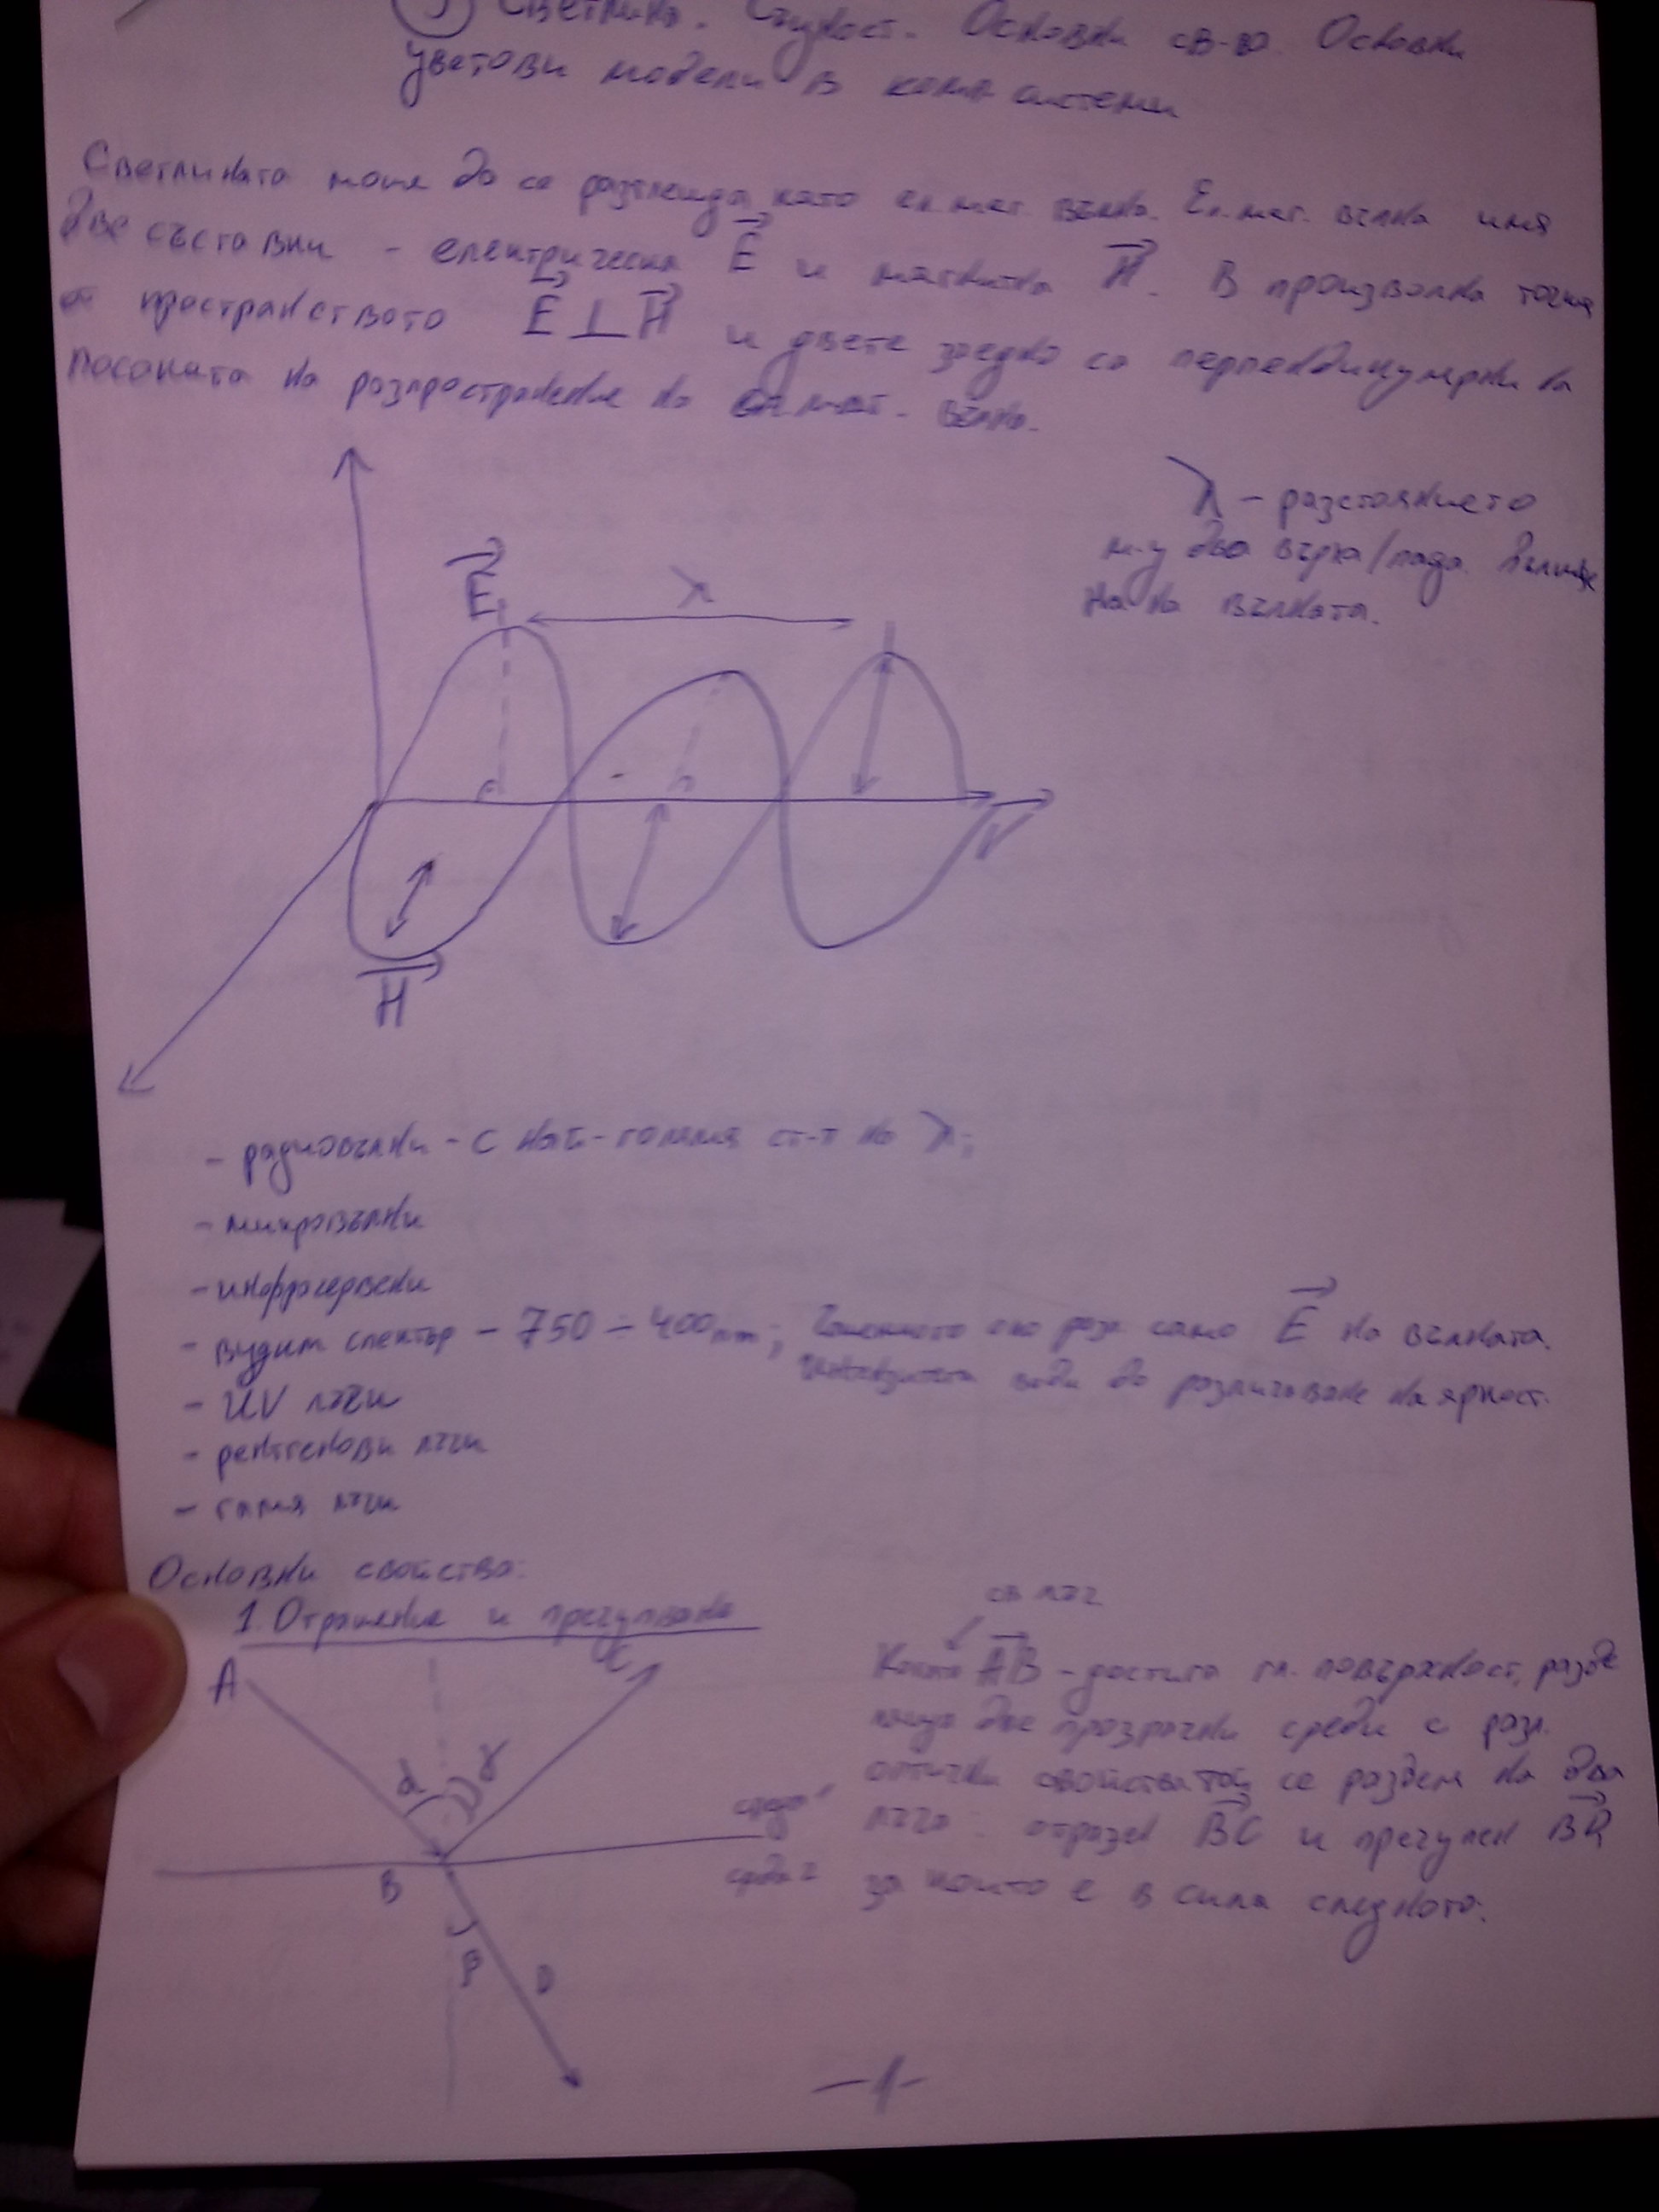 Светлина. Същност. Основни св-ва. Основни
цветови модели в комп системи
Светлината може да се разглежда като ел.маг. вълна. Ел.маг. вълна има
две съставки - електрическа E и магнитна H. В произволна точка
от пространството E ⊥ H и двете заедно са перпендикулярни на
посоката на разпространение на ел.маг. вълна.
λ - разстоянието
м-у два върха/пада. Дължи
на на вълната.
E
λ
V
H
- радиовълни - с най-голяма ст-т на λ;
- микровълни
- инфрачервени
- видим спектър - 750 - 400nm; Човешкото око разл само E на вълната.
Интензитета води до различаване на яркост.
- UV лъчи
- рентгенови лъчи
- гама лъчи
Основни свойства:
1. Отражение и пречупване
св лъч
A
C
Когато AB - достига гл. повърхност, разде
ляща две прозрачни среди с разл.
оптични свойства той се разделя на два
лъча: отразен BC и пречупен BD
за които е в сила следното:
α γ
среда 1
B
среда 2
β
D
-1-